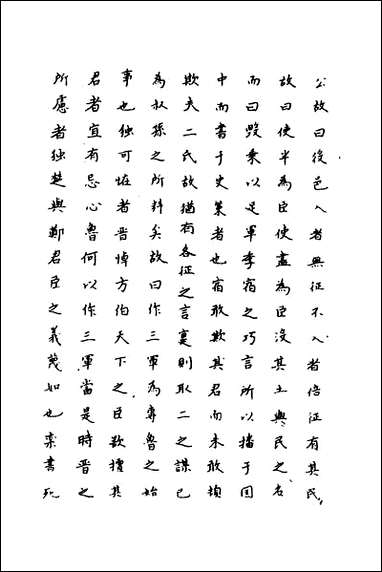 公故曰役邑入者無征不入者倍征有其民
故曰使半為臣使盡為臣沒其土與民之名
而曰毀乘以足軍季宿之巧言所以播于国
中而書于史策者也宿敢欺其君而未敢
欺夫二氏故猶有各征之言裏則取二之謀已
為叔孫之所料矣故曰作三軍為專魯之始
事也独可怪者晋悼方伯天下之臣欲擅其
君者宜有忌心魯何以作三軍當是時晋之
所慮者独楚與鄭君臣之義蔑如也栾書死